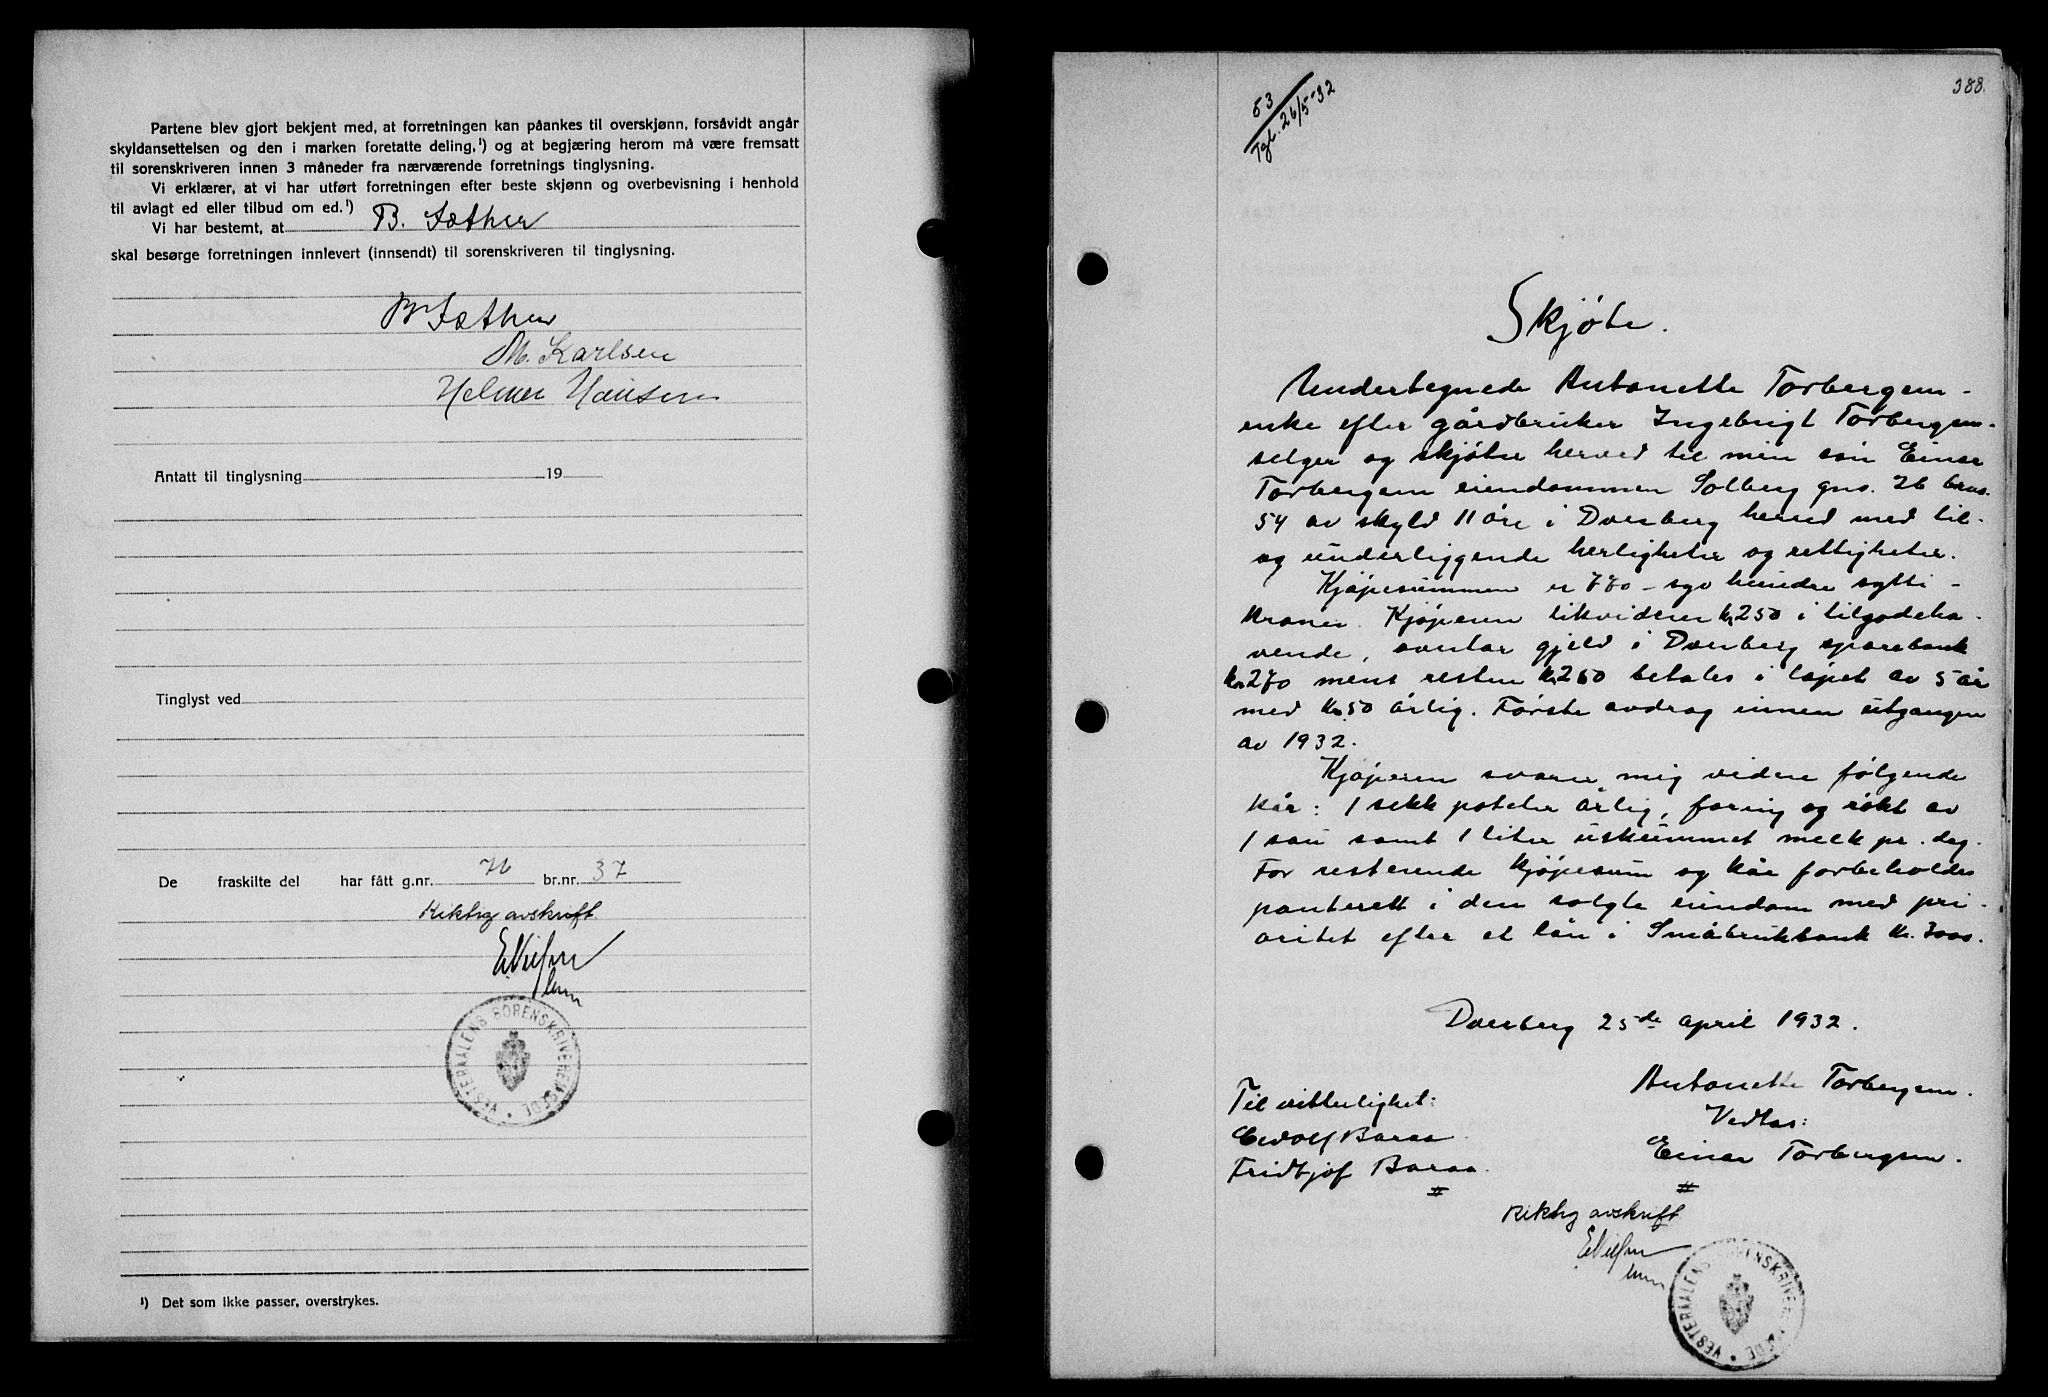 Partene blev gjort bekjent med, at forretningen kan påankes til overskjønn, forsåvidt angår
skyldansettelsen og den i marken foretatte deling,¹) og at begjæring herom må være fremsatt
til sorenskriveren innen 3 måneder fra nærværende forretnings tinglysning.
Vi erklærer, at vi har utført forretningen efter beste skjønn og overbevisning i henhold
til avlagt ed eller tilbud om ed.¹)
Vi har bestemt, at B. Sæther
skal besørge forretningen innlevert (innsendt) til sorenskriveren til tinglysning.
B. Sæther
M. Karlsen
Helmer Hansen
Antatt til tinglysning 19
Tinglyst ved
De fraskilte del har fått g.nr. 76 br.nr. 37
Riktig avskrift
E. Nilsen
VESTERAALENS SORENSKRIVEREMBEDE
¹) Det som ikke passer, overstrykes.
388.
53
Tgl. 26/5-32
Skjöte.
Undertegnede Antonette Torbergsen -
enke efter gårdbruker Ingebrigt Torbergsen -
selger og skjöter herved til min sön Einar
Torbergsen eiendommen Solberg gno. 26 bno.
54 av skyld 11 öre i Dverberg herred med til-
og underliggende herligheter og rettigheter.
Kjöpesummen er 770 - syv hundre sytti -
kroner. Kjöperen likviderer kr 250 i tilgodeha-
vende, overtar gjeld i Dverberg sparebank
kr 270 mens resten kr 250 betales i löpet av 5 år
med kr. 50 årlig. Förste avdrag innen utgangen
av 1932.
Kjöperen svarer mig videre fölgende
kår: 1 sekk poteter årlig, foring og rökt av
1 sau samt 1 liter uskummet melk pr. dag.
For resterende kjöpesum og kår forbeholdes
panterett i den solgte eiendom med pri-
oritet efter et lån i Småbrukbank kr. 3000.
Dverberg 25de april 1932.
Antonette Torbergsen.
Til vitterlighet:
Vedtas:
Edvolf Baraa
Einar Torbergsen.
Fridtjof Baraa.
Riktig avskrift
E. Nilsen
VESTERAALENS SORENSKRIVEREMBEDE